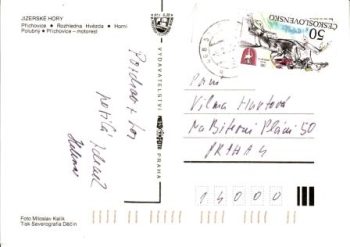 JIZERSKÉ HORY
Příchovice • Rozhledna Hvězda • Horní
Polubný • Příchovice - motorest
VYDAVATELSTVÍ
PRAHA
ČESKOSLOVENSKO
50
Pozdrav z hor
posílá
Paní
Vilma
Na Bítevní Pláni 50
PRAHA 4
14000
Foto Miloslav Kalík
Tisk Severografia Děčín